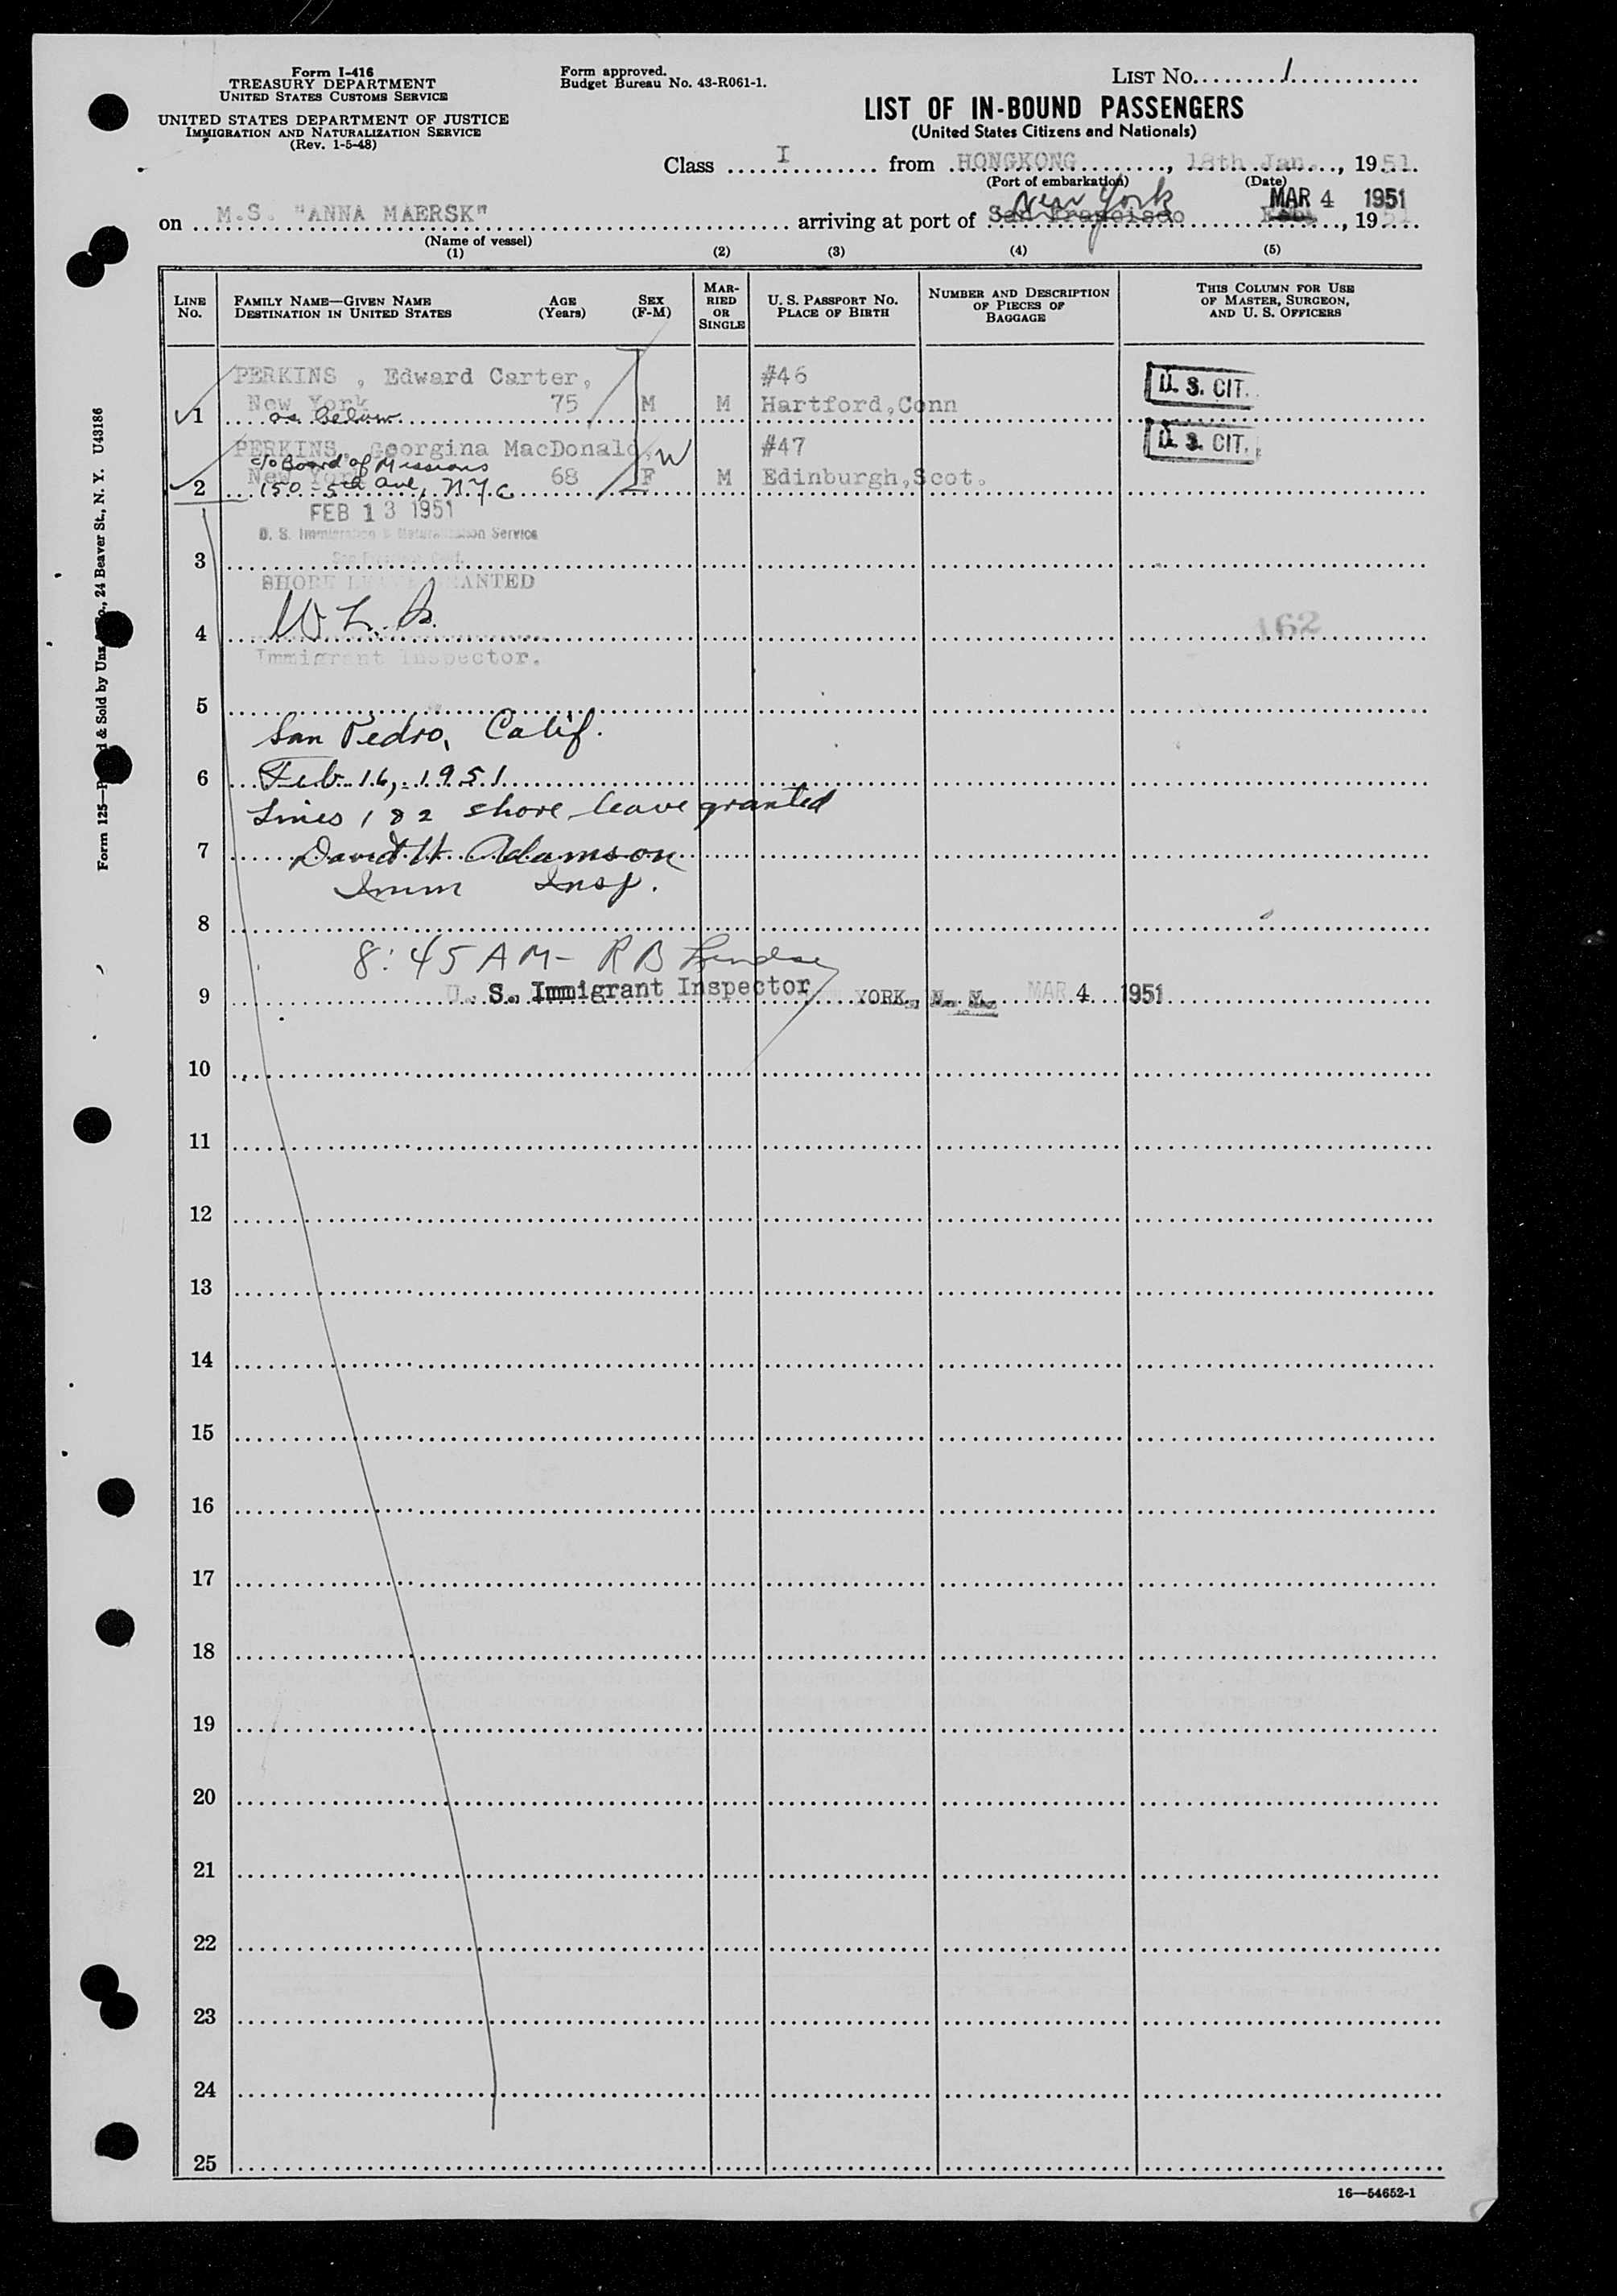 Form I-416
TREASURY DEPARTMENT
UNITED STATES CUSTOMS SERVICE
UNITED STATES DEPARTMENT OF JUSTICE
IMMIGRATION AND NATURALIZATION SERVICE
(Rev. 1-5-48)
Form approved.
Budget Bureau No. 43-R061-1.
LIST NO. 1
LIST OF IN-BOUND PASSENGERS
(United States Citizens and Nationals)
Class I from HONGKONG, 18th Jan., 1951
(Port of embarkation) (Date)
New York MAR 4 1951
on M.S. "ANNA MAERSK" arriving at port of San Francisco, 1951
(Name of vessel)
(1) (2) (3) (4) (5)
LINE NO.
FAMILY NAME—GIVEN NAME
DESTINATION IN UNITED STATES
AGE (Years)
SEX (F-M)
MARRIED OR SINGLE
U. S. PASSPORT NO.
PLACE OF BIRTH
NUMBER AND DESCRIPTION OF PIECES OF BAGGAGE
THIS COLUMN FOR USE OF MASTER, SURGEON, AND U. S. OFFICERS
PERKINS , Edward Carter, #46 U. S. CIT.
1 New York 75 M M Hartford,Conn
as below
PERKINS, Georgina MacDonald, W #47 U. S. CIT.
c/o Board of Missions
2 New York 68 F M Edinburgh,Scot.
150 5th Ave, NYC
FEB 13 1951
U. S. Immigration & Naturalization Service
3
SHORE LEAVE GRANTED
4 162
Immigrant Inspector.
5
San Pedro, Calif.
6 Feb. 16, 1951
Lines 1 & 2 shore leave granted
7 David H. Adamson
Imm Insp.
8
8:45 AM - R B Lindsey
9 U. S. Immigrant Inspector YORK, N. Y. MAR 4 1951
10
11
12
13
14
15
16
17
18
19
20
21
22
23
24
25
16—54652-1
Form 125— & Sold by Unz & Co., 24 Beaver St., N. Y. U43186